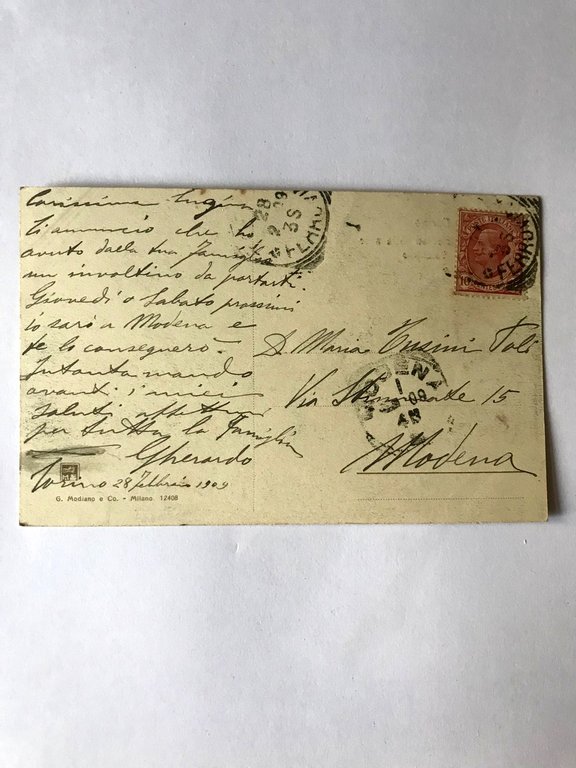 Carissima
ti annuncio che ho
avuto dalla tua famiglia
un involtino da portarti.
Giovedì o Sabato prossimi
io sarò a Modena e
te lo consegnerò.
Intanto mando
avanti i miei
saluti affettuosi
per tutta la famiglia
Gherardo
Torino 28 Febbraio 1909
G. Modiano e Co. - Milano 12408
28
2
09
3S
FERROVIA
10
D. Maria Tusini Poli
Via 15
Modena
MODENA
1
09